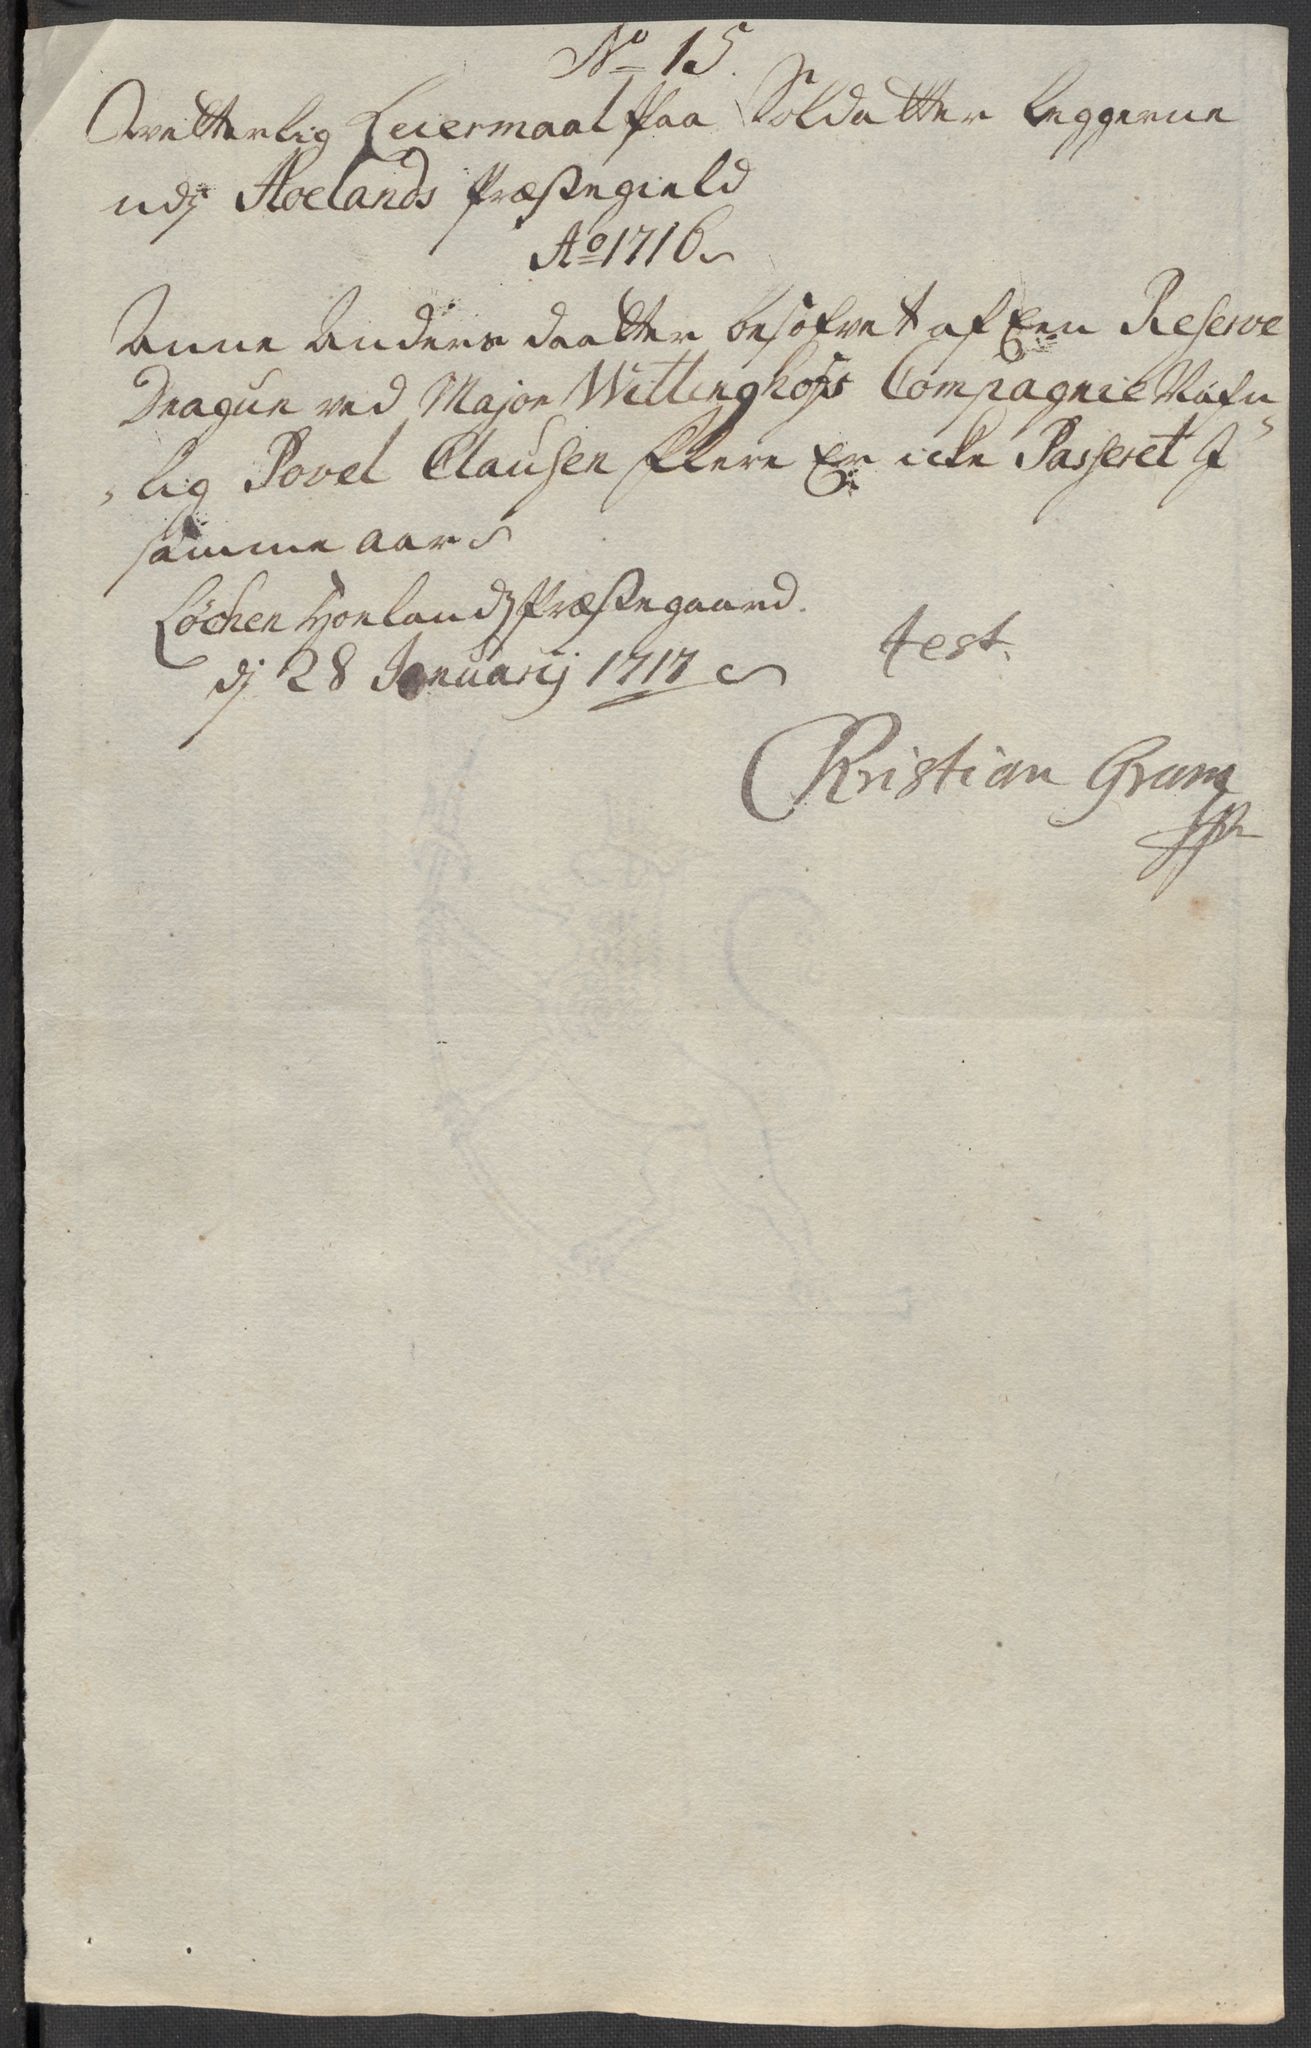 No 15.
Qvetterlig Leiermaal paa Soldatter leggerne
udj Hoelands Præstegield
Ao 1716
Anne Anders daatter besofvet af Een Reserve
Dragun ved Major Wittinghofs Compagnie Nafn
lig Povel Clausen flere Er icke Passeret I
samme aar
Löchen Hoelands Præstegaard.
dj 28 Januarij 1717
test.
Kristian Gram